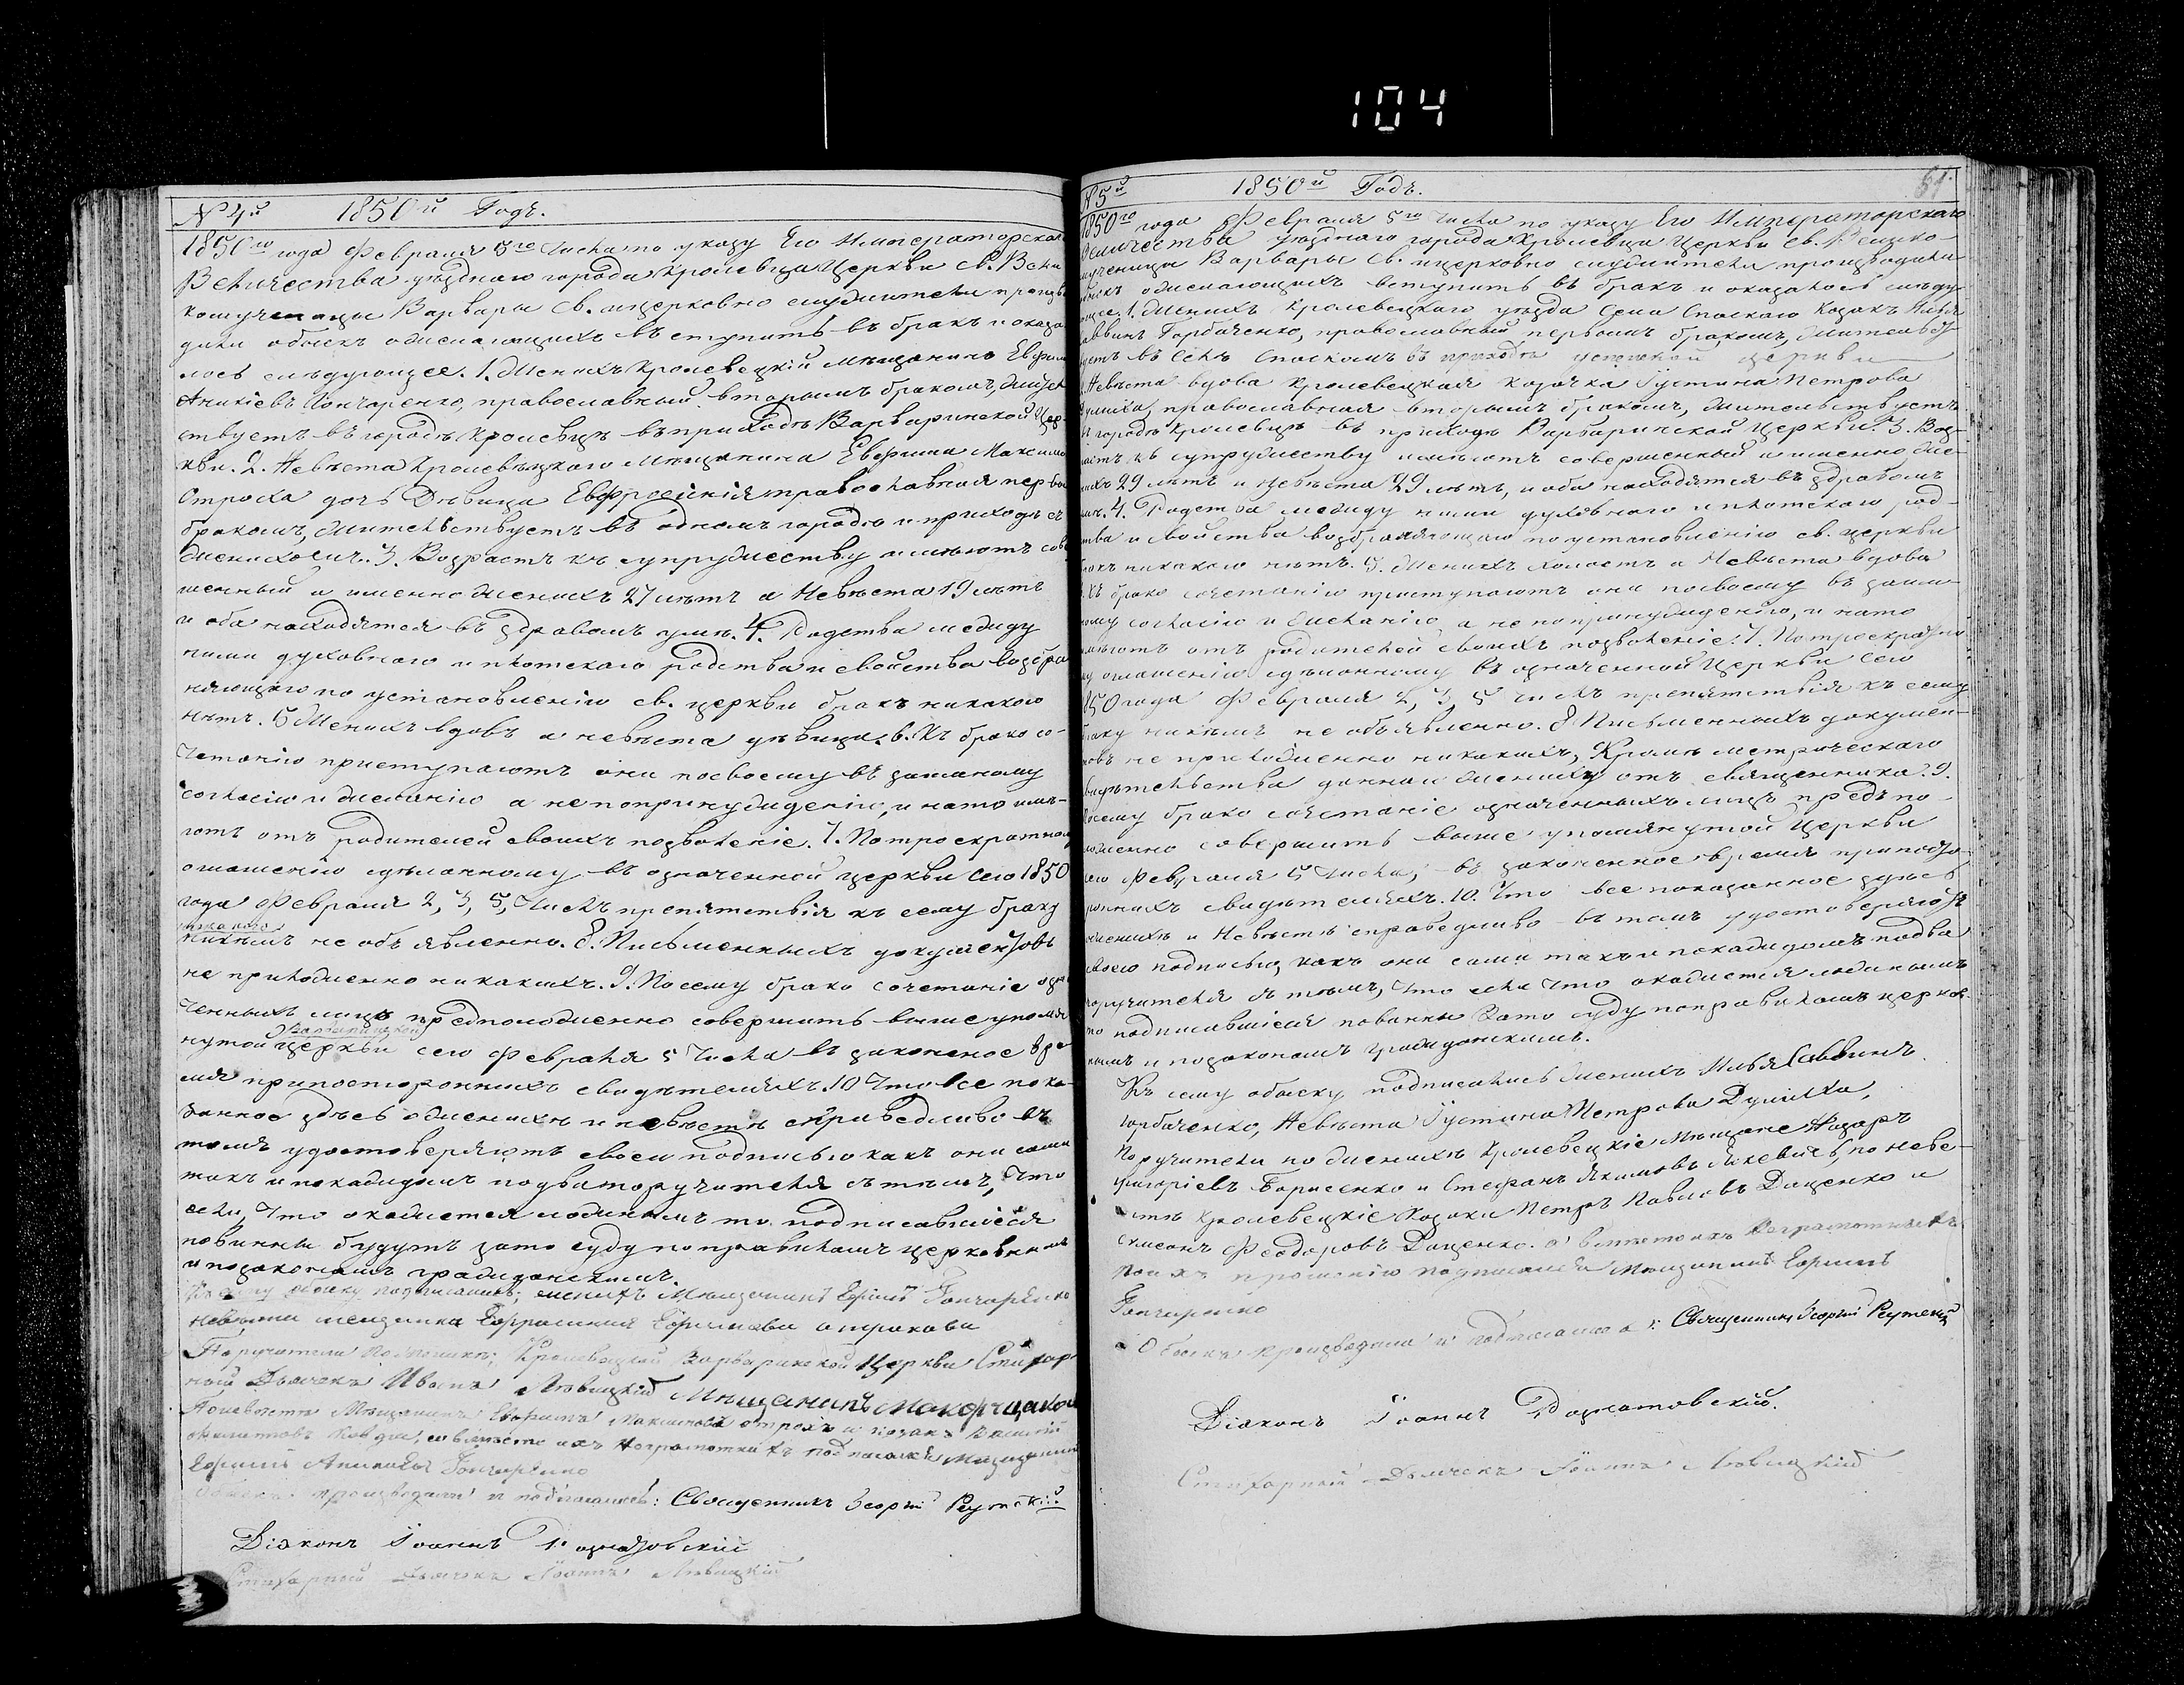 104
№ 4й 1850й Годъ.
1850го года Февраля 5го числа по указу Его Императорскаго
Величества уѣзднаго города Кролевца Церкви Св. Вели
комученицы Варвары Св. ицерковно служители произво
дили обыскъ о желающихъ въступить въ бракъ и оказа
лось слѣдующее. 1. Женихъ Кролевецкій Мѣщанинъ Ефим
Аникіевъ Гончаренко, православный. вторымъ бракомъ, жител
ствуетъ въ городѣ Кролевцѣ въ приходѣ Варваринской Цер-
кви. 2. Невѣста Кролевѣцкаго Мѣщанина Евфима Максимо
Строха дочь Дѣвица Евфросинія православная первы
бракомъ, жительствуетъ въ одномъ городѣ и приходѣ съ
женихомъ. 3. Возрастъ къ супружеству имѣютъ сове
шенный и именно женихъ 27 лѣтъ а Невѣста 19 лѣтъ
и оба находятся въ здравомъ умѣ. 4. Родства между
ними духовнаго и плотскаго родства и свойства возбра
няющаго по установленію св. церкви бракъ никакого
нѣтъ. 5 Женихъ вдовъ а невѣста дѣвица. 6. Къ брако со-
четанію приступаютъ они посвоему въ заимному
согласію и желанію а не попринужденію, и на то имѣ-
ютъ отъ родителей своихъ позволеніе. 7. По троекратному
оглашенію сдѣланному въ означенной церкви сего 1850
года Февраля 2, 3, 5, числъ препятствія къ сему браку
никакого
никѣмъ не объявленно. 8. Письменныхъ документовъ
не приложенно никакихъ. 9. Посему брако сочетаніе озна
ченныхъ лицъ предположенно совершить выше упомя
Варваринской
нутой церкви сего Февраля 5 числа въ законеное вре
мя при постороннихъ свидѣтеляхъ. 10 Что все пока-
занное здѣсь о женихѣ и невѣстѣ справедливо въ
томъ удостоверяютъ своею подписью какъ они сами
такъ и покаждомъ подва поручителя съ тѣмъ, что
если, что окажется ложнымъ то подписавшіеся
повинны будутъ за то суду по правиламъ церковнымъ
и позаконамъ гражданскимъ.
Къ сему обыску подписались; женихъ Мѣщанинъ Ефимъ Гончаренко
невѣста мещанка Ефросинія Ефимова строхова
Поручители По женихѣ; Кролевецкой Варваринской Церкви Стихар
ный Дьячекъ Иванъ Левицкій Мѣщанинъ
По невѣстѣ Мѣщанинъ Евфимъ Максимовъ Строхъ и козакъ
а вмѣсто ихъ неграмотныхъ подписался Мѣщанинъ
Ефимъ Аникіевъ Гончаренко
Обыскъ производили и подписались: Священникъ Георгій Реутскій
Діаконъ Іоаннъ
Стихарный Дьячекъ Іоаннъ Левицкій
№ 5й 1850й Годъ.
61.
1850го года Февраля 5го числа по указу Его Императорскаго
Величества уѣзднаго города Кролевца Церкви Св. Велико-
мученицы Варвары Св. ицерковно служители производили
обыскъ о желающихъ вступить въ бракъ и оказалось слѣду-
ющее. 1. Женихъ Кролевецкаго уѣзда Села Спаскаго Козакъ Илья
Саввинъ Горбаченко, православный первымъ бракомъ, жительст
уетъ въ селѣ Спаскомъ въ приходѣ успенской церкви
Невѣста вдова Кролевецкая козачка Іустина Петрова
православная вторымъ бракомъ, жительствуетъ
въ городѣ Кролевцѣ въ приходѣ Варваринской Церкви. 3. Воз-
растъ къ супружеству имѣютъ совершенный и именно же-
нихъ 29 лѣтъ и невѣста 29 лѣтъ, и оба находятся въ здравомъ
умѣ. 4. Родства между ними духовнаго и плотскаго род-
ства и свойства возбраняющаго поустановленію св. церкви
бракъ никакого нѣтъ. 5. Женихъ холостъ а Невѣста вдова
6. Къ брако сочетанію приступаютъ они посвоему въ заим-
ному согласію и желанію а не попринужденію, и нато
имѣютъ отъ родителей своихъ позволеніе. 7. По троекратно
му оглашенію сдѣланному въ означенной Церкви сего
1850 года Февраля 2, 3, 5 числъ препятствія къ сему
браку никѣмъ не объявленно. 8 Письменныхъ докумен-
товъ не приложенно никакихъ, Кромѣ метрическаго
свидѣтельства даннаго жениху отъ священника. 9.
Посему брако сочетаніе означенныхъ лицъ предъпо-
ложенно совершить выше упомянутой Церкви
сего Февраля 5 числа, въ законенное время при посто-
роннихъ свидѣтеляхъ. 10. Что все показанное здѣсь
о женихѣ и Невѣстѣ справедливо въ томъ удостоверяютъ
своею подписью, какъ они сами такъ и покаждомъ подва
поручителя съ тѣмъ, что если что окажется ложнымъ
то подписавшіеся повинны зато суду поправиламъ церков-
нымъ и позаконамъ гражданскимъ.
Къ сему обыску подписались Женихъ Илья Саввинъ
Горбаченко, Невѣста Іустина Петрова
Поручители по женихѣ Кролевецкіе Мѣщане Назаръ
Григоріевъ Борисенко и Стефанъ Якимовъ Яцкевичъ, по неве-
стѣ Кролевецкіе Козаки Петръ Павловъ Даценко и
Симеонъ Феодоровъ Даценко. а вмѣсто ихъ неграмотныхъ
по ихъ прошенію подписался Мѣщанинъ Ефимъ
Гончаренко
Обыскъ производили и подписались: Священникъ Георгій Реутскій
Діаконъ Іоаннъ
Стихарный Дьячекъ Іоаннъ Левицкій